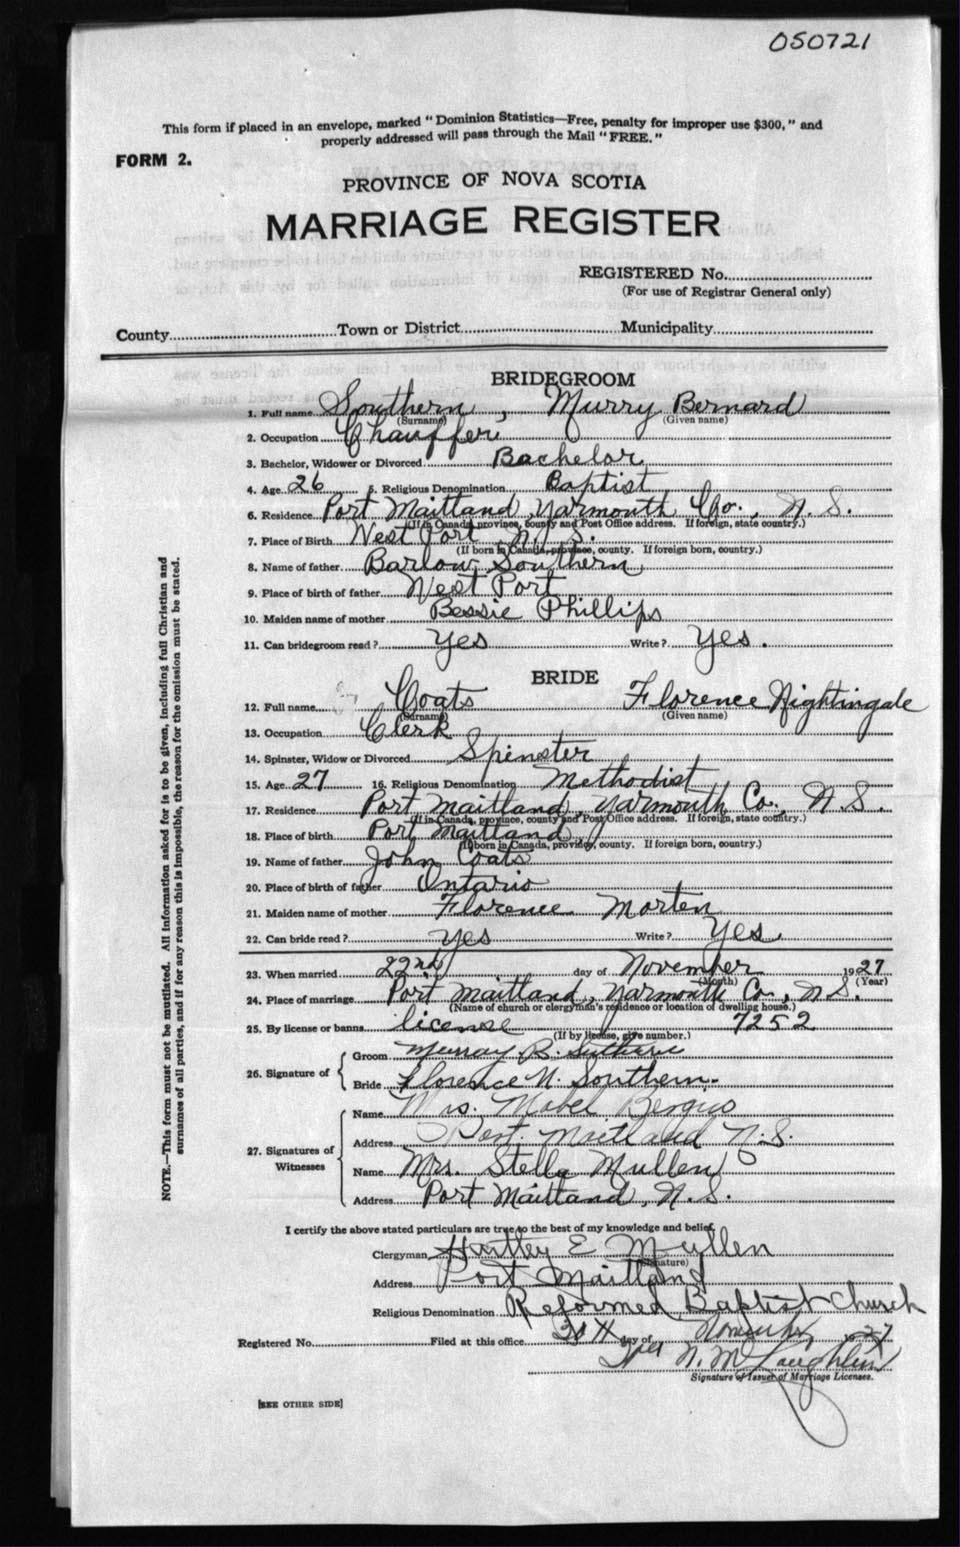 050721
This form if placed in an envelope, marked "Dominion Statistics—Free, penalty for improper use $300," and
properly addressed will pass through the Mail "FREE."
FORM 2.
PROVINCE OF NOVA SCOTIA
MARRIAGE REGISTER
REGISTERED No.
(For use of Registrar General only)
County Town or District Municipality
BRIDEGROOM
1. Full name Southern, Murry Bernard
(Surname) (Given name)
2. Occupation Chauffer
3. Bachelor, Widower or Divorced Bachelor
4. Age 26 5. Religious Denomination Baptist
6. Residence Port Maitland, Yarmouth Co., N. S.
(If in Canada, province, county and Post Office address. If foreign, state country.)
7. Place of Birth West Port N. S.
(If born in Canada, province, county. If foreign born, country.)
8. Name of father Barlow Southern
9. Place of birth of father West Port
10. Maiden name of mother Bessie Phillips
11. Can bridegroom read? Yes Write? Yes.
BRIDE
12. Full name Coats Florence Nightingale
(Surname) (Given name)
13. Occupation Clerk
14. Spinster, Widow or Divorced Spinster
15. Age 27 16. Religious Denomination Methodist
17. Residence Port Maitland, Yarmouth Co., N. S.
(If in Canada, province, county and Post Office address. If foreign, state country.)
18. Place of birth Port Maitland
(If born in Canada, province, county. If foreign born, country.)
19. Name of father John Coats
20. Place of birth of father Ontario
21. Maiden name of mother Florence Morten
22. Can bride read? Yes Write? Yes
23. When married 22nd day of November 1927
(Month) (Year)
24. Place of marriage Port Maitland, Yarmouth Co., N. S.
(Name of church or clergyman's residence or location of dwelling house.)
25. By license or banns license 7252
(If by license, give number.)
26. Signature of
Groom Murray B.
Bride Florence N. Southern.
27. Signatures of Witnesses
Name Mrs. Mabel
Address Port Maitland N.S.
Name Mrs. Stella Mullen
Address Port Maitland, N. S.
I certify the above stated particulars are true to the best of my knowledge and belief,
Clergyman Hartley E Mullen
(Signature)
Address Port Maitland
Religious Denomination Reformed Baptist Church
Registered No. Filed at this office day of November 27
N. McLaughlin
Signature of Issuer of Marriage Licenses.
[SEE OTHER SIDE]
NOTE.—This form must not be mutilated. All information asked for is to be given, including full Christian and
surnames of all parties, and if for any reason this is impossible, the reason for the omission must be stated.